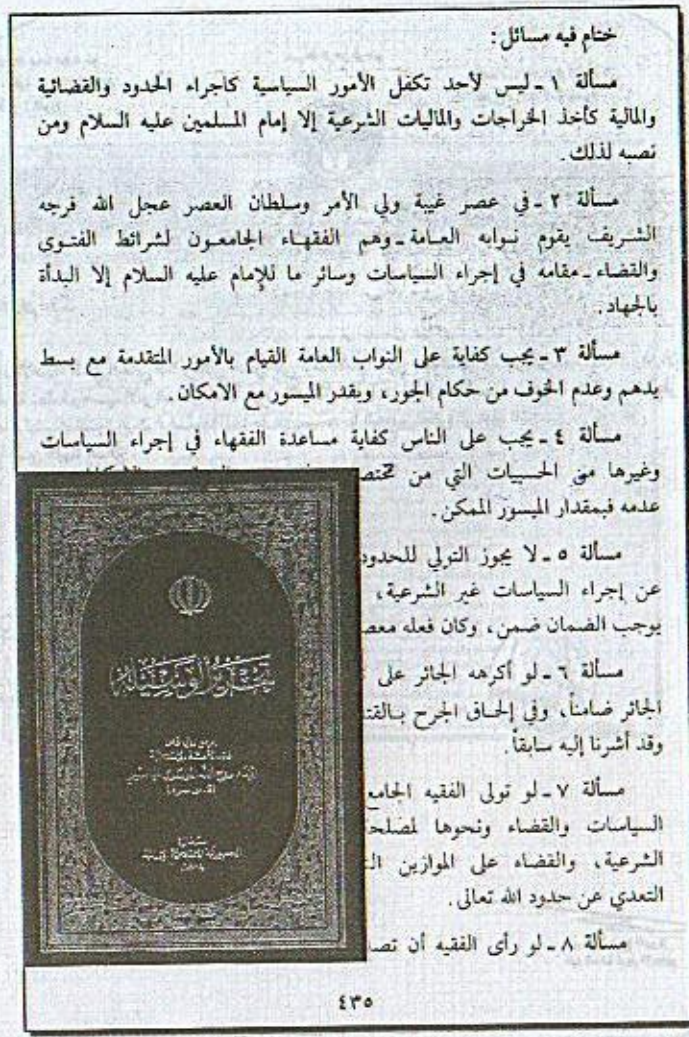 ختام فيه مسائل:
مسألة ١ ـ ليس لأحد تكفل الأمور السياسية كاجراء الحدود والقضائية
والمالية كأخذ الخراجات والماليات الشرعية إلا إمام المسلمين عليه السلام ومن
نصبه لذلك.
مسألة ٢ ـ في عصر غيبة ولي الأمر وسلطان العصر عجل الله فرجه
الشريف يقوم نوابه العامة ـ وهم الفقهاء الجامعون لشرائط الفتوى
والقضاء ـ مقامه في إجراء السياسات وسائر ما للإمام عليه السلام إلا البدأة
بالجهاد.
مسألة ٣ ـ يجب كفاية على النواب العامة القيام بالأمور المتقدمة مع بسط
يدهم وعدم الخوف من حكام الجور، وبقدر الميسور مع الامكان.
مسألة ٤ ـ يجب على الناس كفاية مساعدة الفقهاء في إجراء السياسات
وغيرها من الحسبيات التي من
عدمه فبمقدار الميسور الممكن.
مسألة ٥ ـ لا يجوز التولي للحدود
عن إجراء السياسات غير الشرعية،
يوجب الضمان ضمن، وكان فعله معص
مسألة ٦ ـ لو أكرهه الجائر على
الجائر ضامناً، وفي إلحاق الجرح بالقت
وقد أشرنا إليه سابقاً.
مسألة ٧ ـ لو تولى الفقيه الجامع
السياسات والقضاء ونحوها لمصلحة
الشرعية، والقضاء على الموازين
التعدي عن حدود الله تعالى.
مسألة ٨ ـ لو رأى الفقيه أن تصد
تحرير الوسيلة
٤٣٥